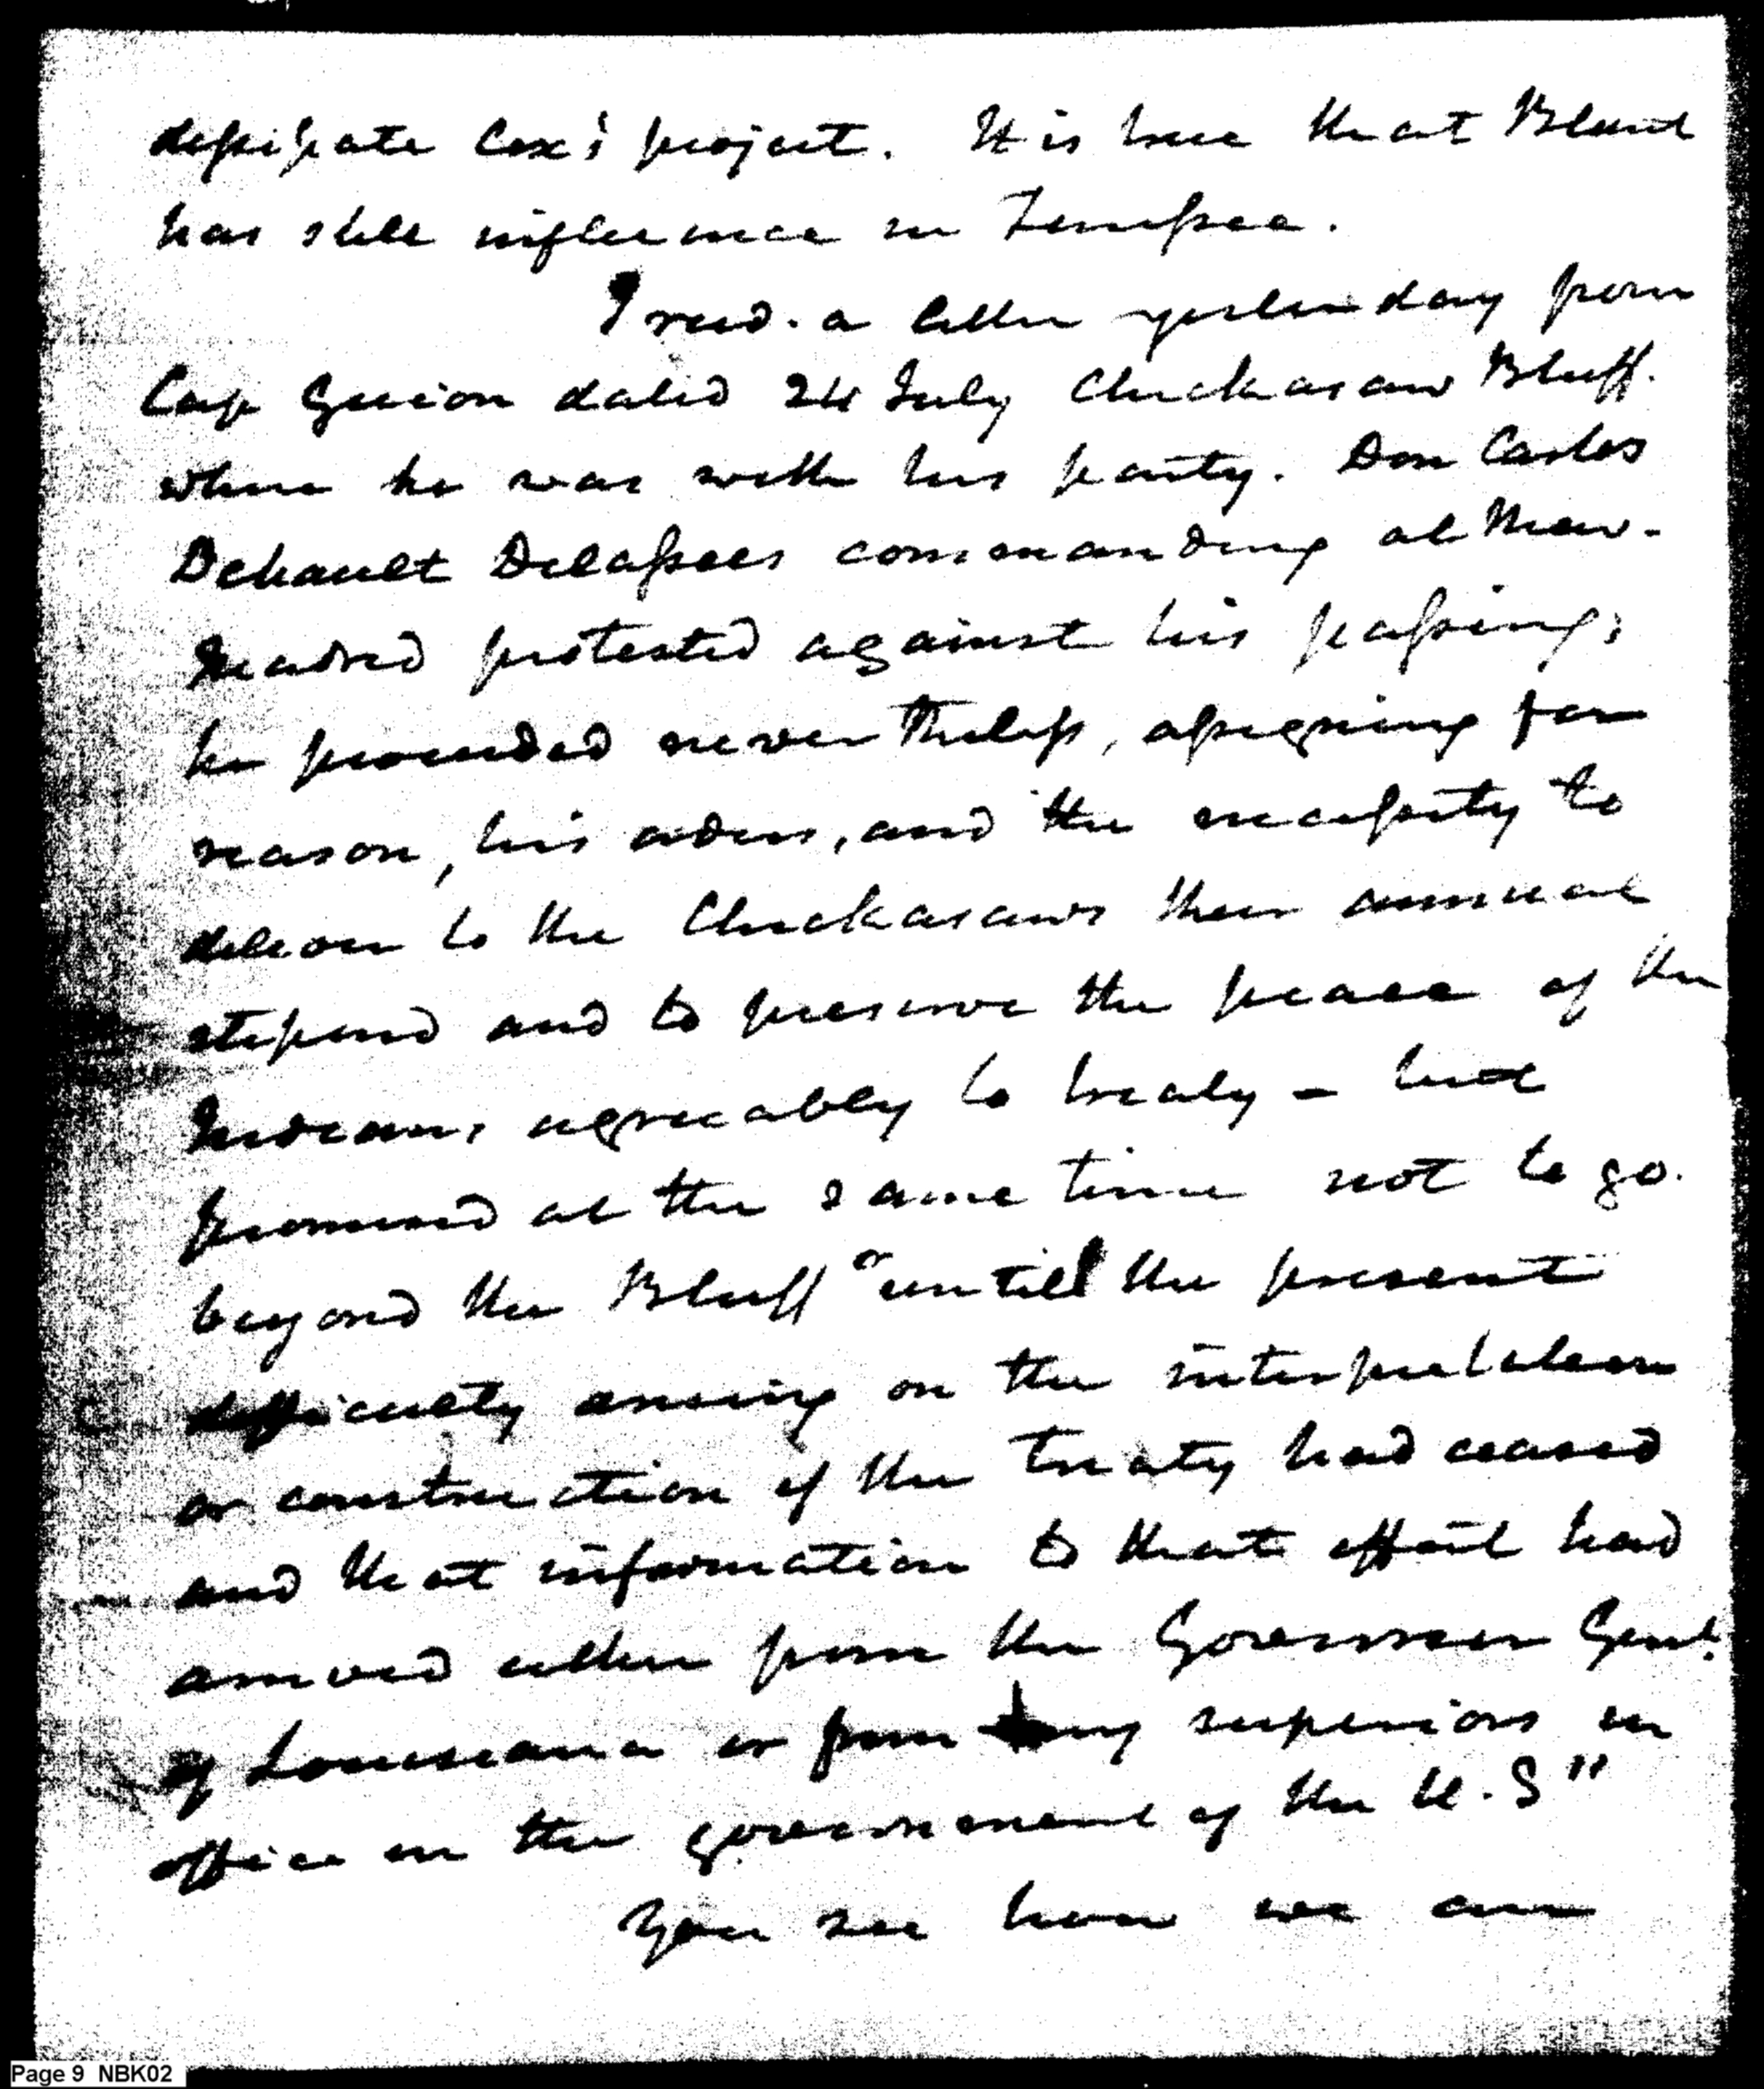 dissipate Cox's project. It is true that Blount
has still influence in Tennessee.
I recd. a letter yesterday from
Cap Guion dated 24 July Chickasaw Bluff.
where he was with his party. Don Carlos
Dehault Delassus commanding at New-
Madrid protested against his passing;
he proceeded nevertheless, assigning for
reason, his orders, and the necessity to
deliver to the Chickasaws their annual
stipend and to preserve the peace of the
Indians, agreeably to treaty – but
promised at the same time not to go
beyond the Bluff "or until the present
difficulty arising on the interpretation
or construction of the treaty had ceased
and that information to that effect had
arrived either from the Governor Genl.
of Louisiana or from my superiors in
office in the government of the U.S"
You see how we are
Page 9 NBK02